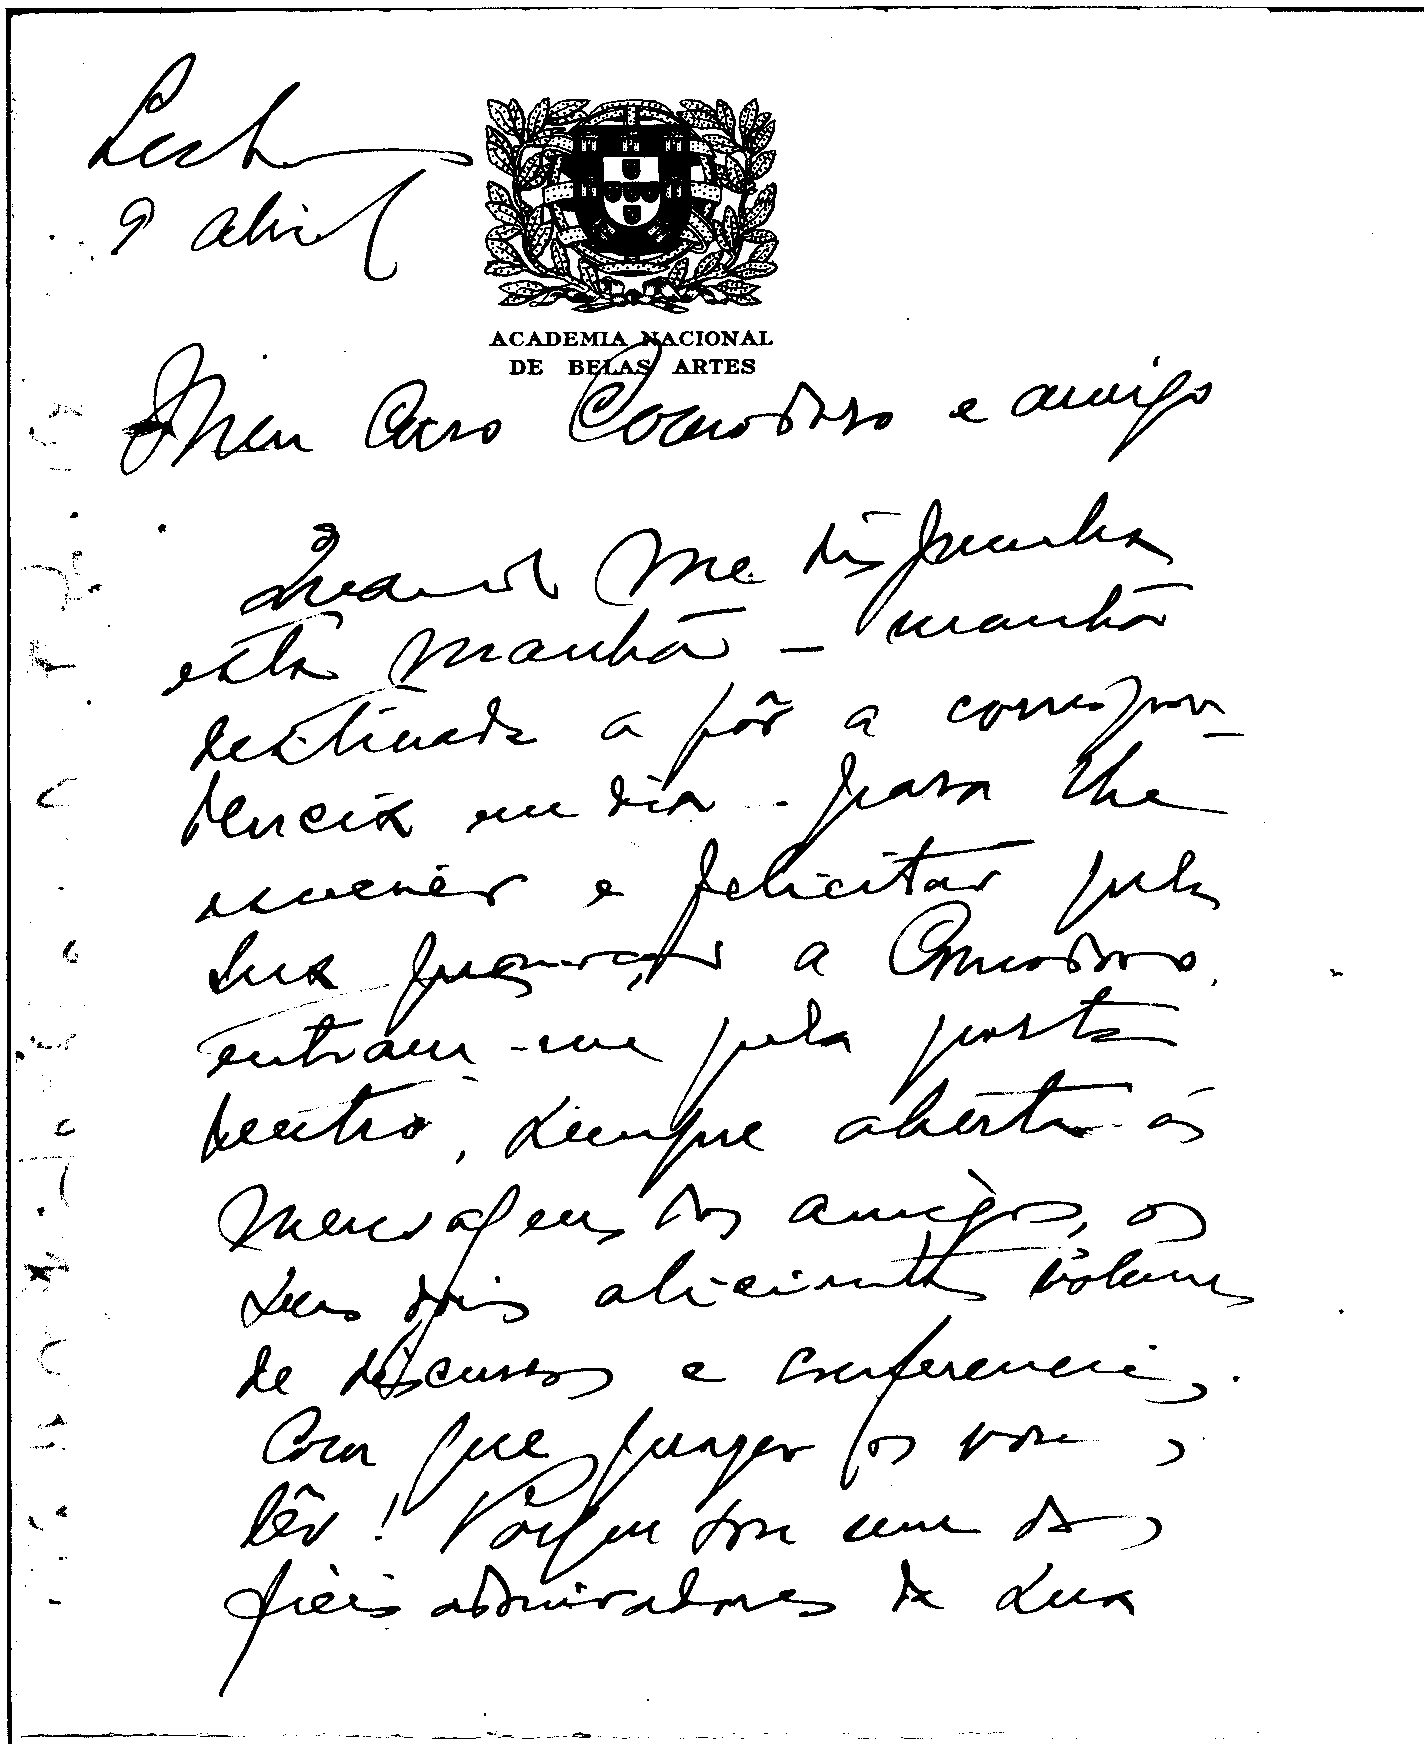 9 abril
ACADEMIA NACIONAL
DE BELAS ARTES
Meu caro Comodoro e amigo
Quando me dispunha
esta manhã – manhã
destinada a pôr a correspon-
dencia em dia – para lhe
escrever e felicitar pela
sua promoção a Comodoro,
entram-me pela porta
dentro, sempre aberta ás
mensagens dos amigos, os
seus dois aliciantes volumes
de discursos e conferencias.
Com que prazer os vou
lêr! Porque sou um dos
fieis admiradores da sua